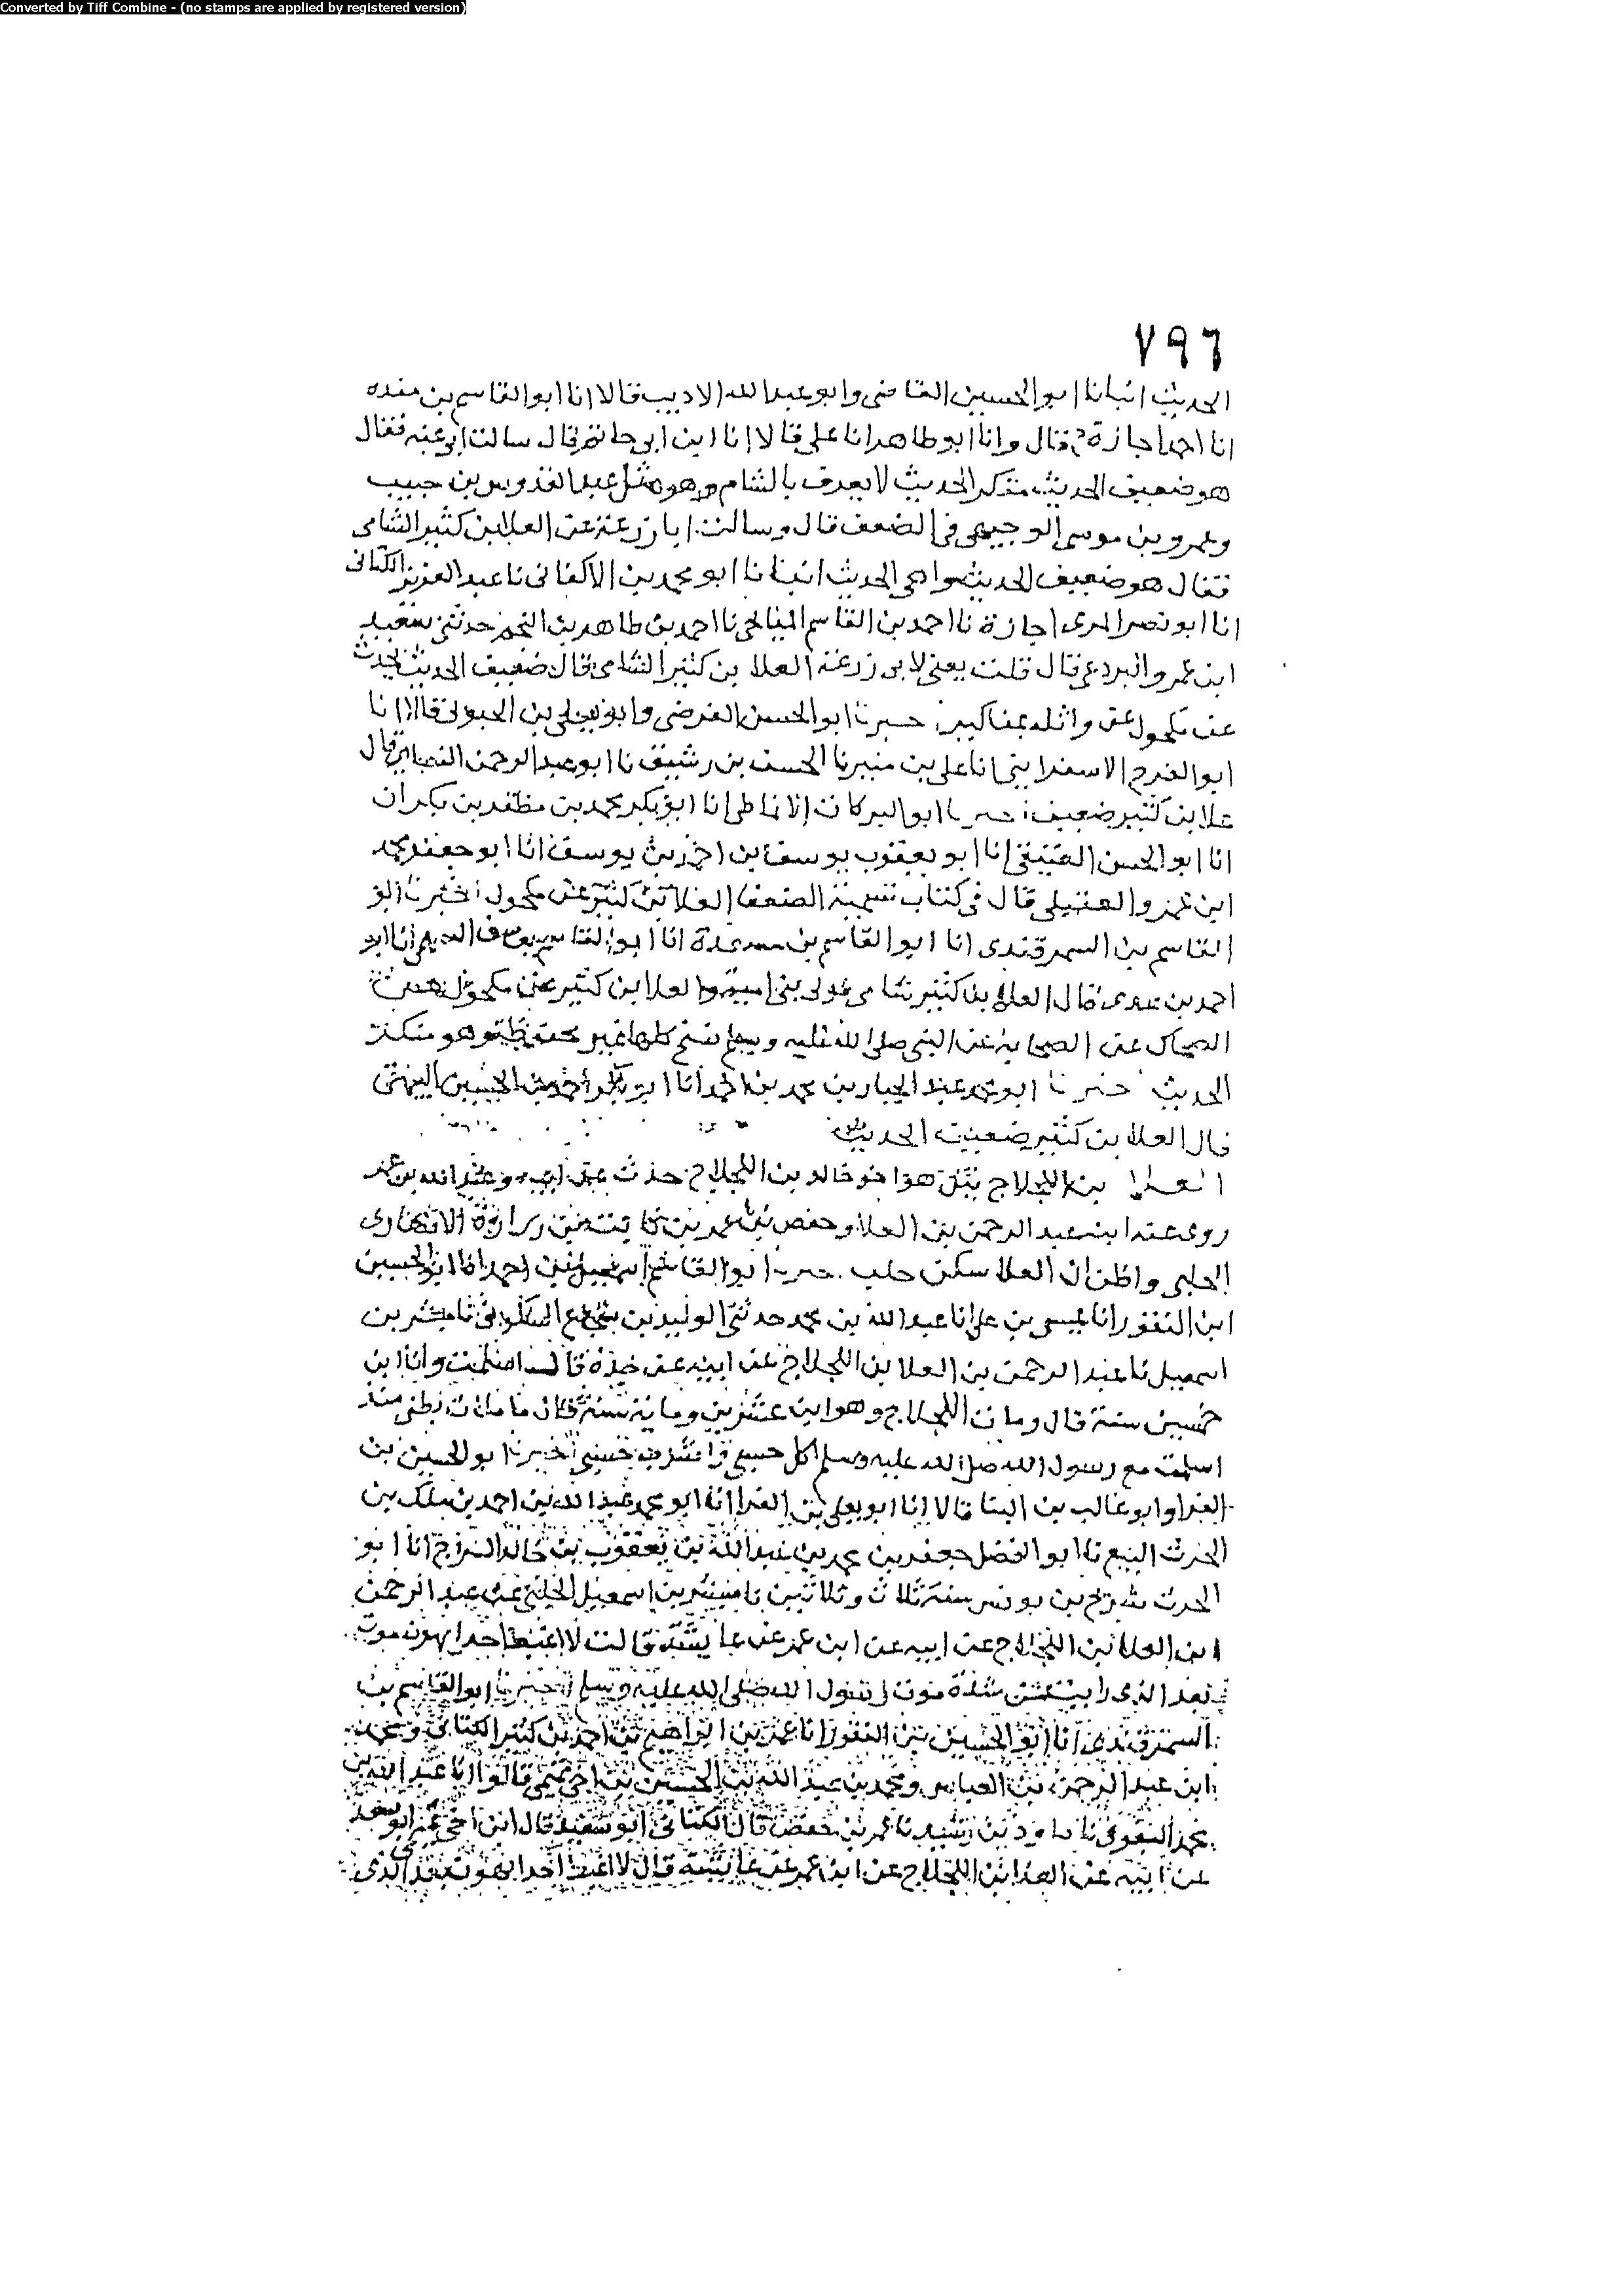 Converted by Tiff Combine - (no stamps are applied by registered version)
٧٩٦
الحديث انبانا ابو الحسين القاضى وابو عبد الله الاديب قالا انا ابو القاسم بن منده
انا احمد اجازة ح قال وانا ابو طاهر انا على قالا انا ابن ابى حاتم قال سالت ابى عنه فقال
هو ضعيف الحديث منكر الحديث لا يعرف بالشام وهو مثل عبد القدوس بن حبيب
وعمرو بن موسى الوجيهى فى الضعف قال وسالت ابا زرعة عن العلا بن كثير الشامى
فقال هو ضعيف الحديث واهى الحديث انبانا ابو محمد بن الاكفانى نا عبد العزيز الكتانى
انا ابو نصر المرى اجازة نا احمد بن القاسم الميانجى نا احمد بن طاهر بن النجم حدثنى سعيد
ابن عمرو البردعى قال قلت يعنى لابى زرعة العلا بن كثير الشامى قال ضعيف الحديث يحدث
عن مكحول عن واثله بمناكير اخبرنا ابو الحسن الفرضى وابو يعلى بن الحبوبى قالا انا
ابو الفرج الاسفرايينى انا على بن منير نا الحسن بن رشيق نا ابو عبد الرحمن النسائى قال
علا بن كثير ضعيف اخبرنا ابو البركات الانماطى انا ابو بكر محمد بن مظفر بن بكران
انا ابو الحسن العتيقى انا ابو يعقوب يوسف بن احمد بن يوسف انا ابو جعفر محمد
ابن عمرو العقيلى قال فى كتاب تسمية الضعفا العلا بن كثير عن مكحول اخبرنا ابو
القاسم بن السمرقندى انا ابو القاسم بن مسعدة انا ابو القاسم يوسف السهمى انا ابو
احمد بن عدى قال العلا بن كثير شامى مولى بنى امية والعلا بن كثير عن مكحول
عن الصحابة عن النبى صلى الله عليه وسلم نسخ كلها غير محفوظة وهو منكر
الحديث اخبرنا ابو محمد عبد الجبار بن محمد بن احمد انا ابو بكر احمد بن الحسين البيهقى
قال العلا بن كثير ضعيف الحديث
العلا بن اللجلاج هو اخو خالد بن اللجلاج حدث عن ابيه وعبد الله بن عمر
روى عنه ابنه عبد الرحمن بن العلا وحفص بن عمر بن الانصارى
الحلبى واظن ان العلا سكن حلب اخبرنا ابو القاسم اسمعيل بن احمد انا ابو الحسين
ابن النقور انا عيسى بن على انا عبد الله بن محمد حدثنى الوليد بن شجاع السكونى نا مبشر بن
اسمعيل نا عبد الرحمن بن العلا بن اللجلاج عن ابيه عن جده قال اسلمت وانا ابن
خمسين سنة قال ومات اللجلاج وهو ابن عشرين وماية سنة قال ما ملات بطنى منذ
اسلمت مع رسول الله صلى الله عليه وسلم اكل حسبى واشرب حسبى اخبرنا ابو الحسين بن
الفرا وابو غالب بن البنا قالا انا ابو يعلى بن الفرا انا ابو محمد عبد الله بن احمد بن ملك بن
الحرث البيع نا ابو الفضل جعفر بن محمد بن عبد الله بن يعقوب بن خالد السراج انا ابو
الحرث شريح بن يونس سنة ثلاث وثلاثين نا مبشر بن اسمعيل الحلبى عن عبد الرحمن
ابن العلا بن اللجلاج عن ابيه عن ابن عمر عن عايشة قالت لا اغبط احدا بهون موت
بعد الذى رايت من شدة موت رسول الله صلى الله عليه وسلم اخبرنا ابو القاسم بن
السمرقندى انا ابو الحسين بن النقور انا عمر بن ابراهيم بن احمد بن كثير الكتانى ومحمد
ابن عبد الرحمن بن العباس ومحمد بن عبد الله بن الحسين بن اخى ميمى قالوا انا عبد الله بن
محمد البغوى نا داود بن رشيد نا عمر بن حفص قال الكتانى ابو سعيد قال ابن اخى ميمى ابو سعد
عن ابيه عن العلا بن اللجلاج عن ابن عمر عن عايشة قال لا اغبط احدا بهون بعد الذى